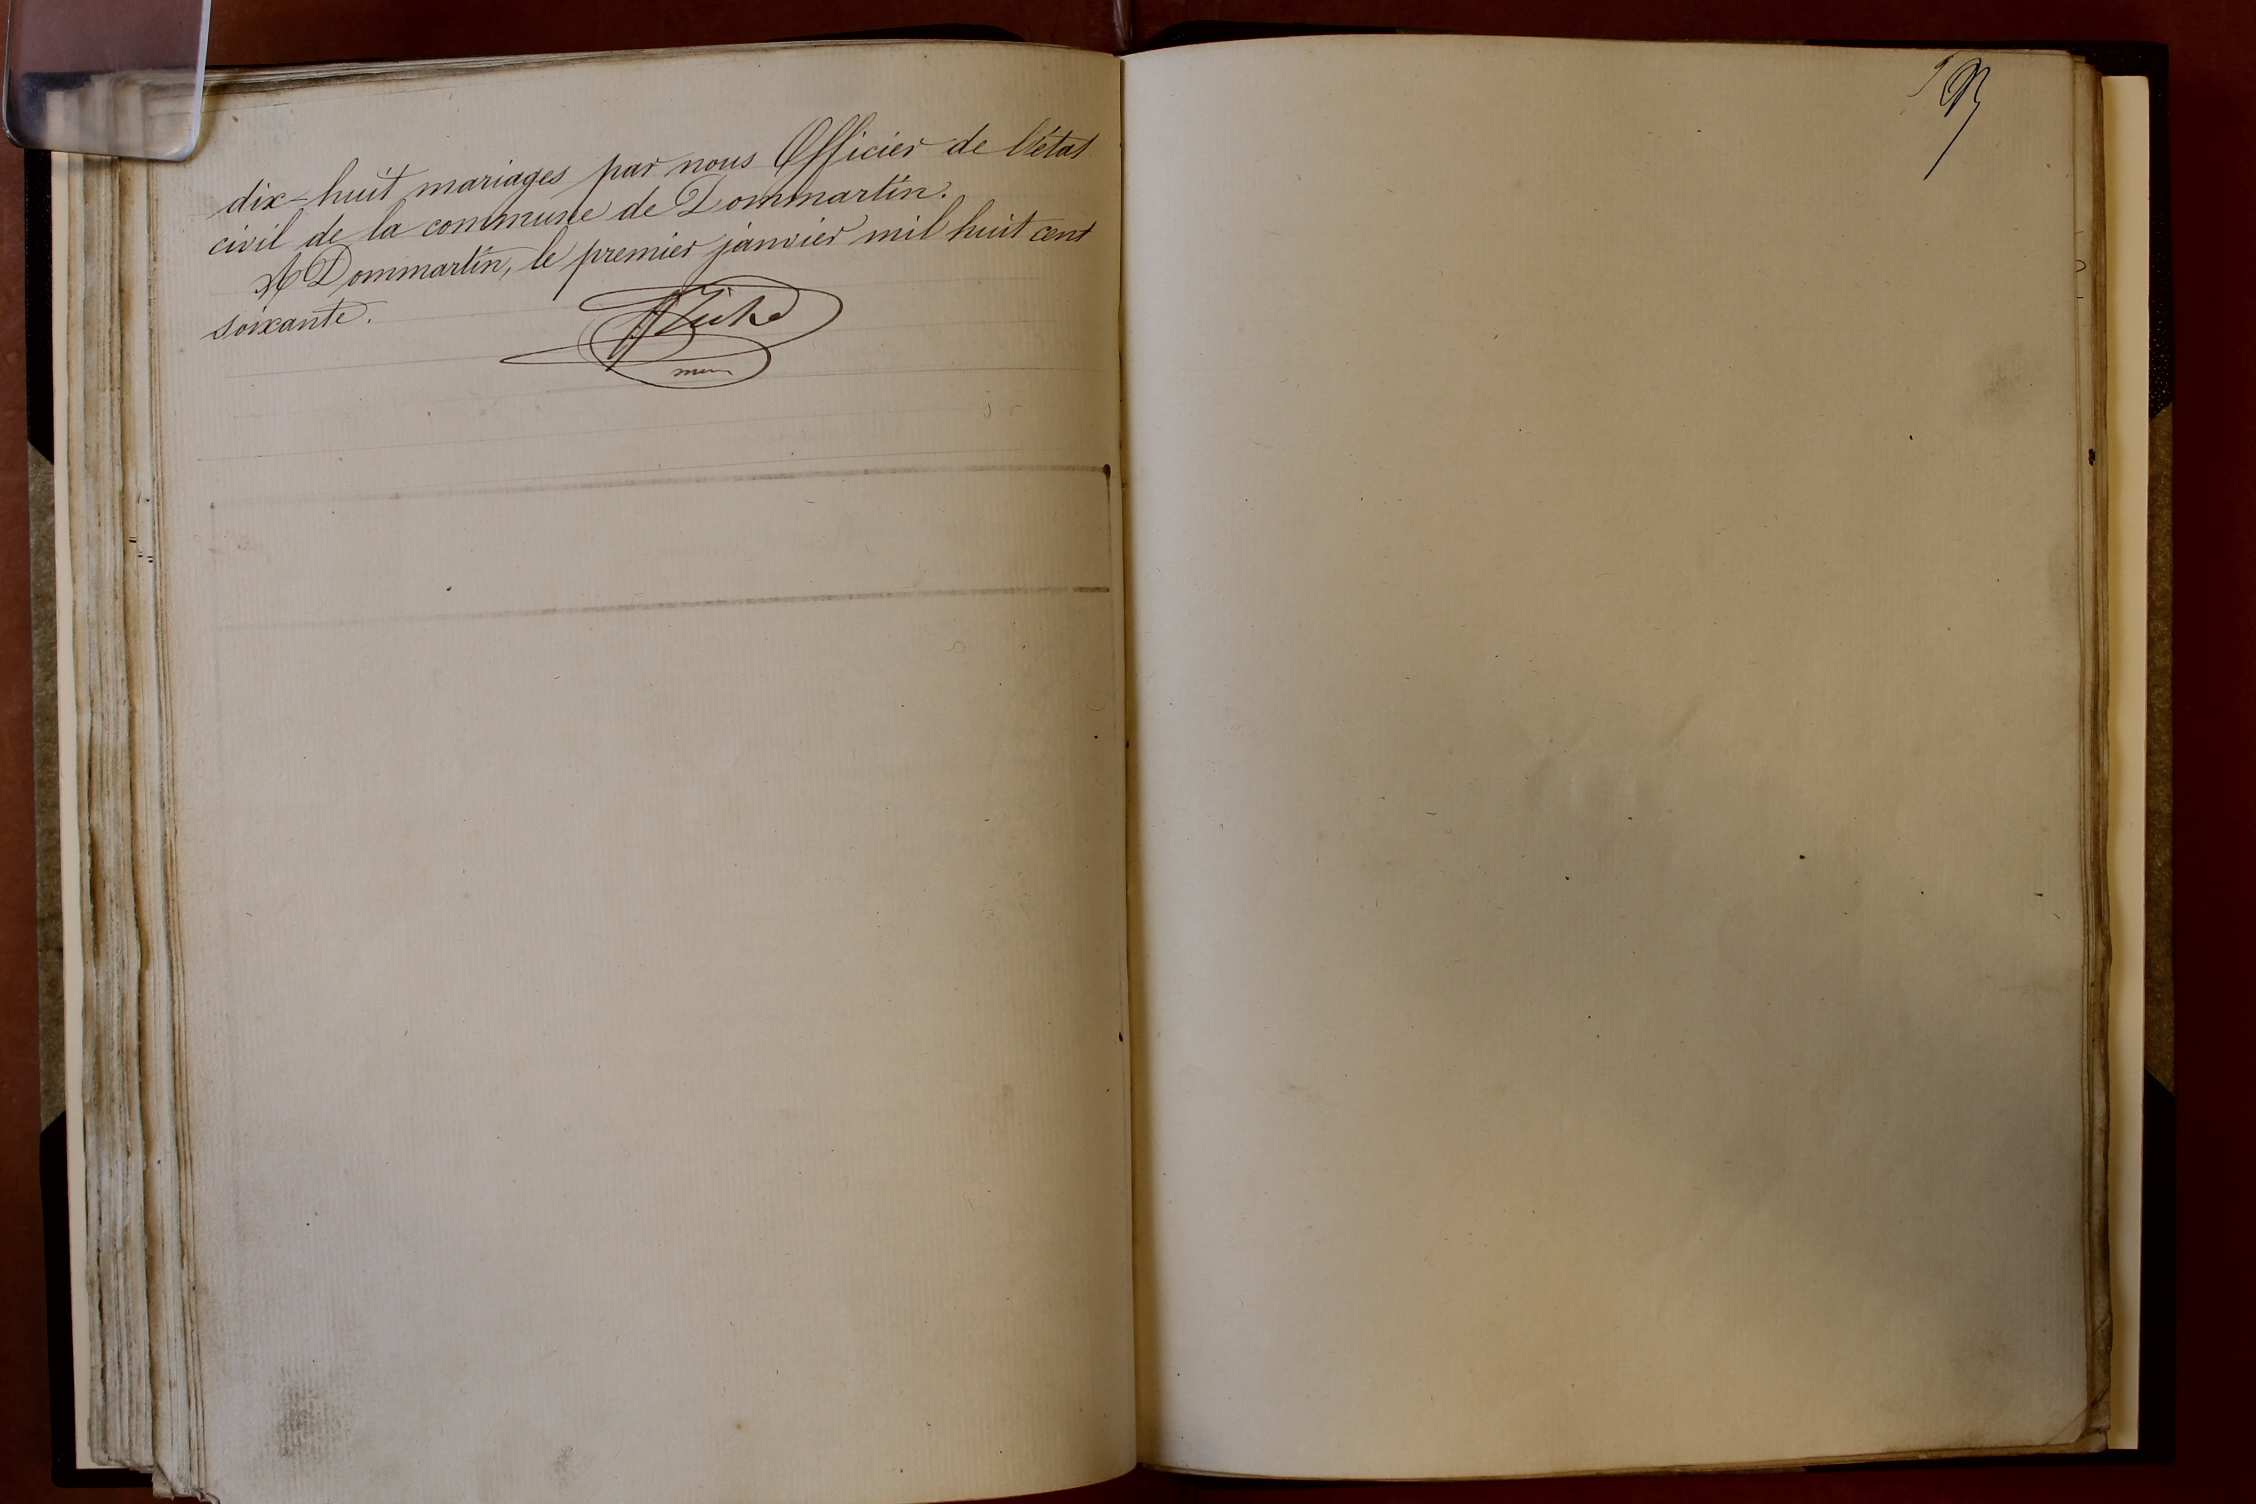 dix-huit mariages par nous Officier de l'état
civil de la commune de Dommartin.
A Dommartin, le premier janvier mil huit cent
soixante.